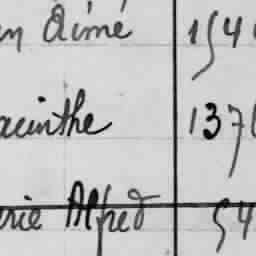 en Aimé 154
acinthe 137
rie Alfred 54